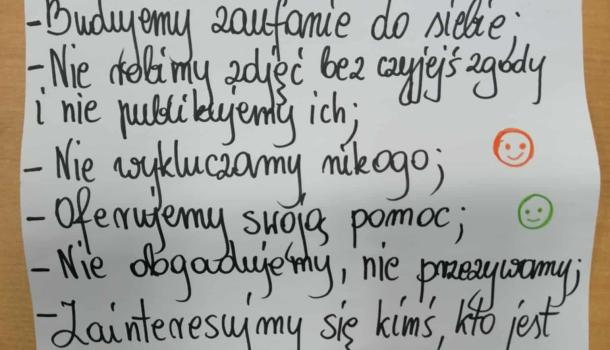 - Budujemy zaufanie do siebie;
- Nie robimy zdjęć bez czyjejś zgody
i nie publikujemy ich;
- Nie wykluczamy nikogo;
- Oferujemy swoją pomoc;
- Nie obgadujemy, nie przezywamy;
- Zainteresujmy się kimś, kto jest